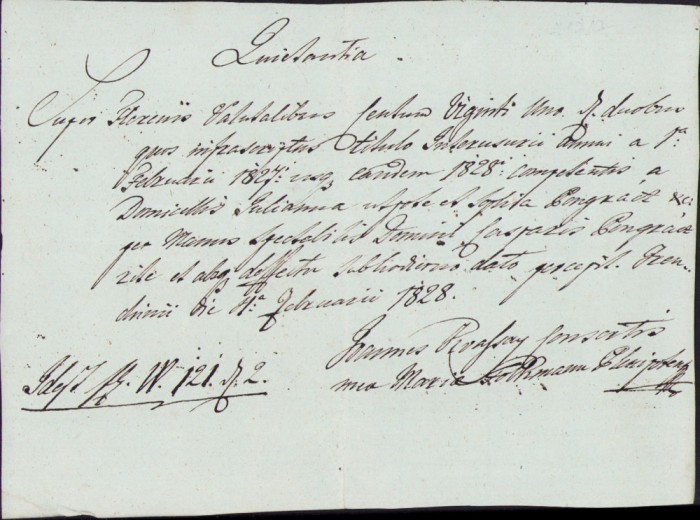 Quietantia
Super Florenis Valutalibus Centum Viginti Uno Xr. duobus
quos infrascriptus titulo Interusurii Anni a 1a
Februarii 1827i usq eandem 1828i competentis a
Domicellis Julianna et Sophia Pongratz
per Manus Spectabilis Domini Casparis Pongratz
rite et absq deffectu sub hodierno dato percepi. Tren-
chinii die 4a Februarii 1828.
Joannes Consortis
mea Maria
Idest fl. W. 121. Xr. 2.